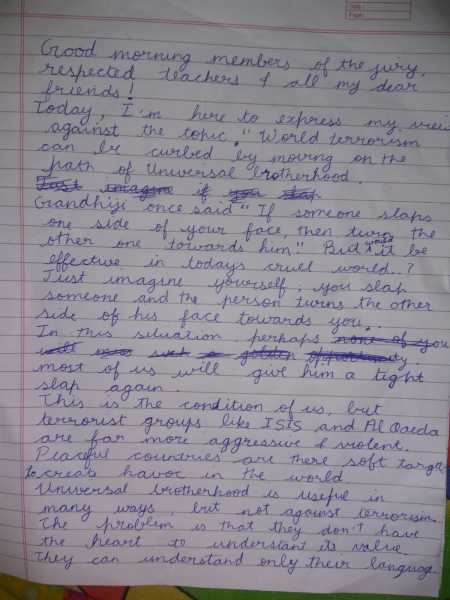 Date
Page
Good morning members of the jury,
respected teachers & all my dear
friends!
Today, I'm here to express my view
against the topic, "World terrorism
can be curbed by moving on the
path of Universal brotherhood.
Just imagine if you slap
Gandhiji once said "If someone slaps
one side of your face, then turn the
other one towards him." But it be
effective in todays cruel world..?
Just imagine yourself, you slap
someone and the person turns the other
side of his face towards you..
In this situation, perhaps none of you
will miss such a golden opportunity.
most of us will give him a tight
slap again
This is the condition of us, but
terrorist groups like ISIS and Al Qaeda
are far more aggressive & violent.
Peaceful countries are there soft target
to create havoc in the world
Universal brotherhood is useful in
many ways, but not against terrorism.
The problem is that they don't have
the heart to understant its value.
They can understand only their language